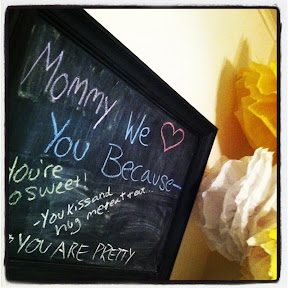 Mommy We ♡
You Because-
You're
so sweet!
-You kiss and
hug me
*YOU ARE PRETTY